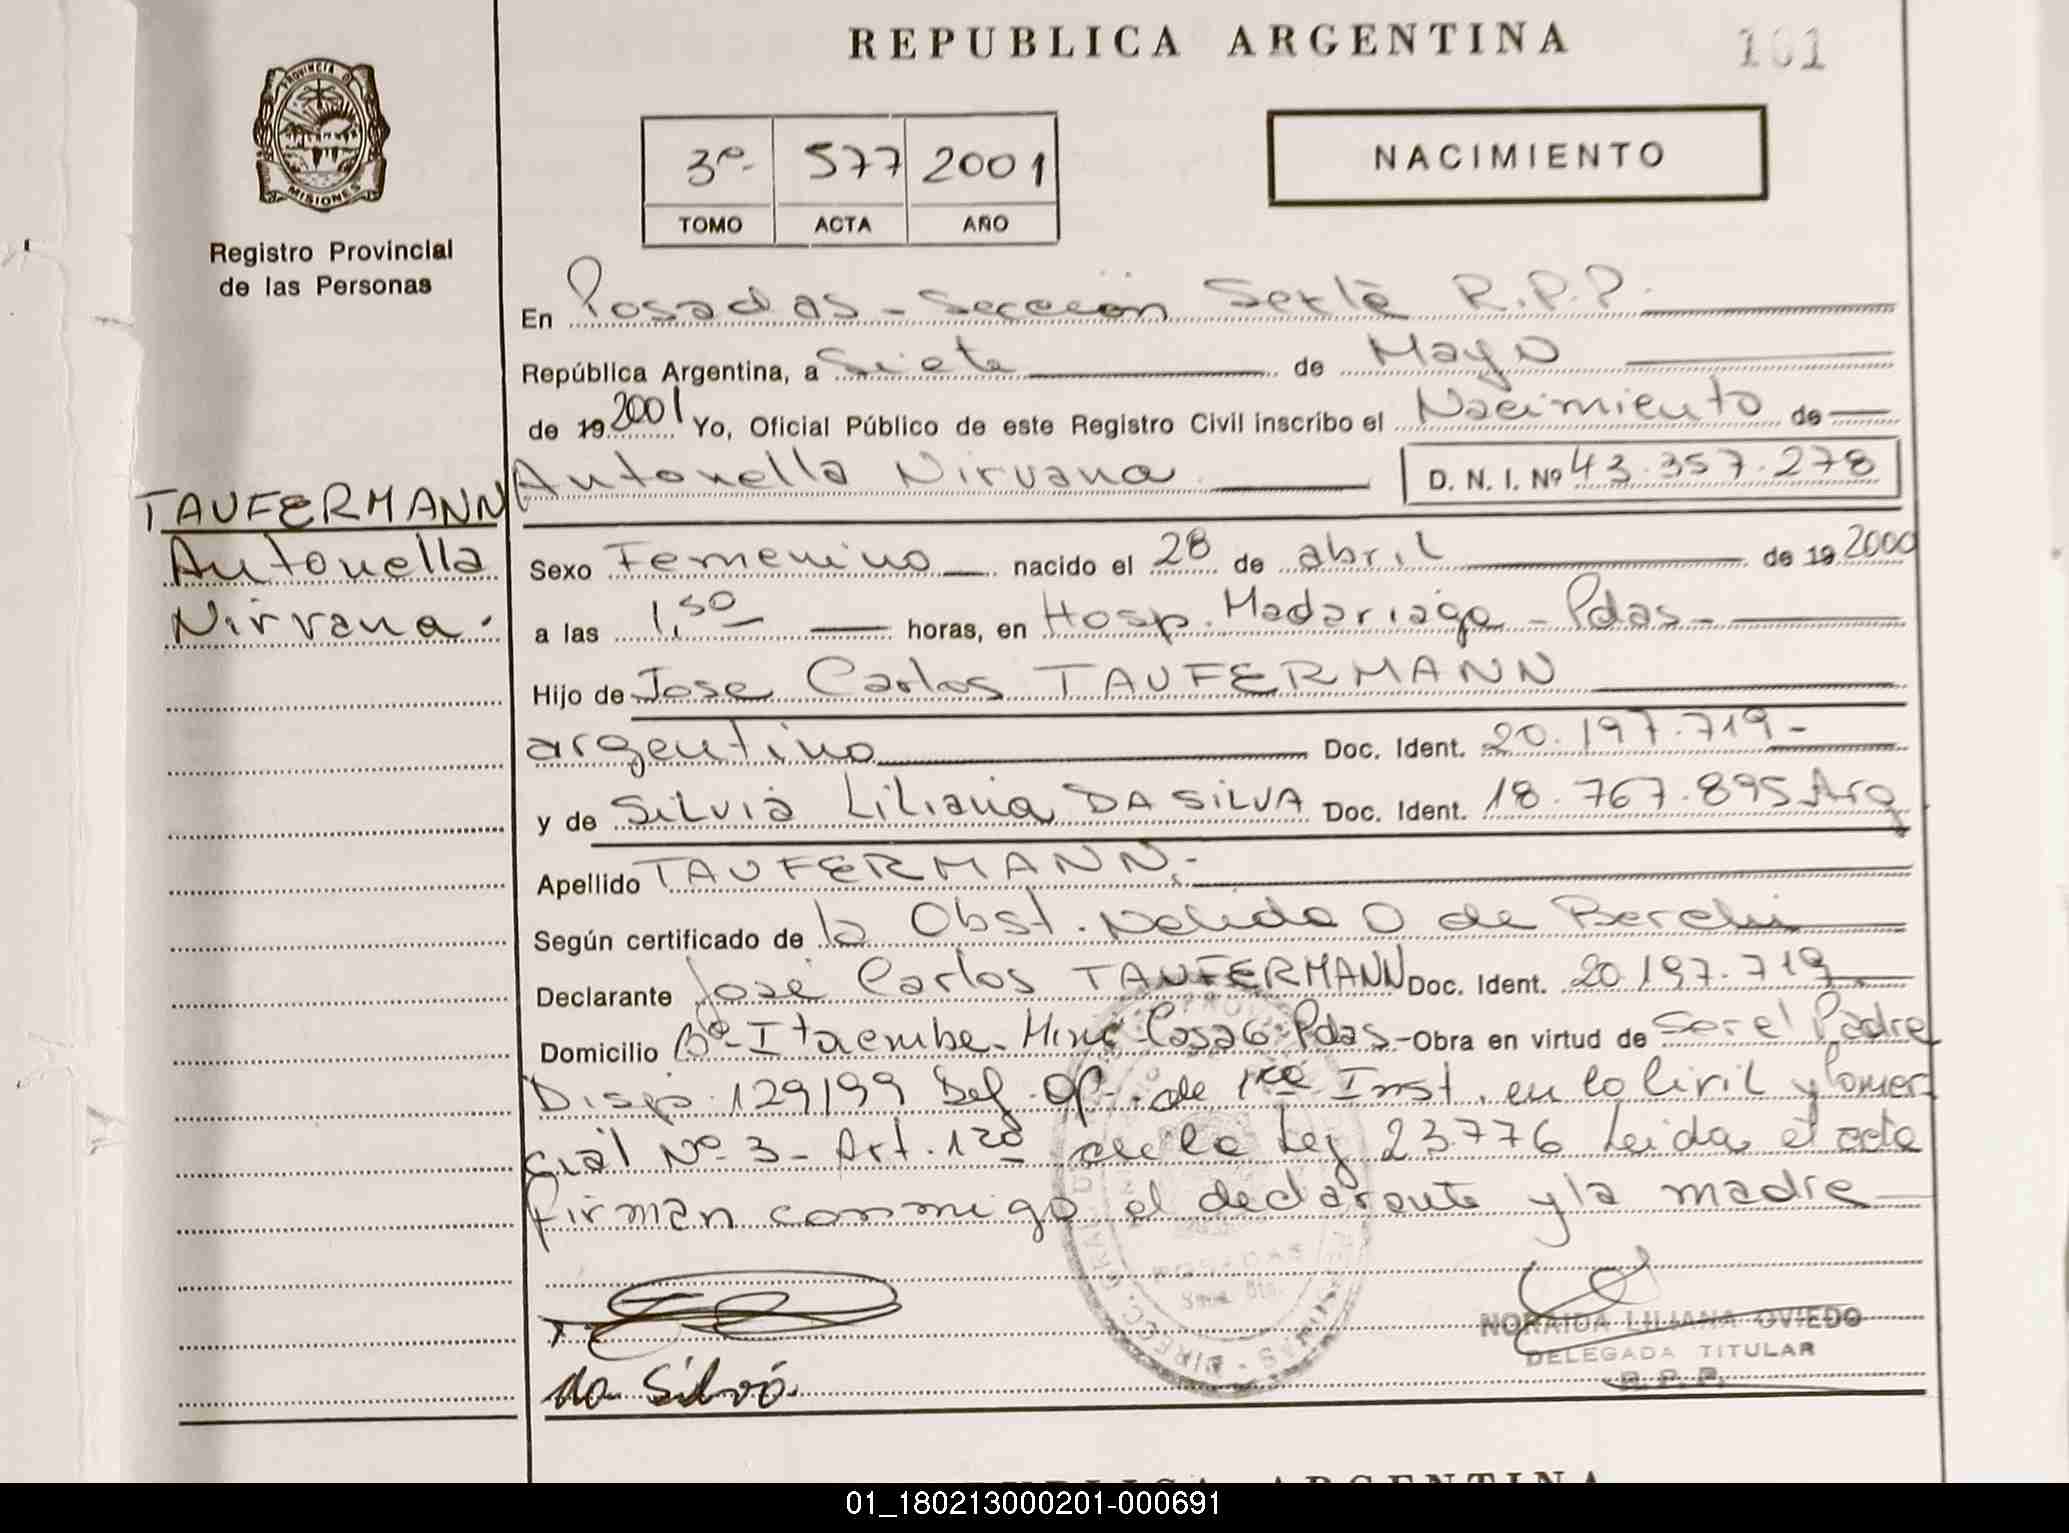 REPUBLICA ARGENTINA
101
PROVINCIA D
MISIONES
Registro Provincial
de las Personas
3º- 577 2001
TOMO ACTA AÑO
NACIMIENTO
En Posadas - Sección Sexta R.P.P.
República Argentina, a Siete de Mayo
de 19 2001 Yo, Oficial Público de este Registro Civil inscribo el Nacimiento de
Antonella Nirvana D. N. I. Nº 43.357.278
TAUFERMANN
Antonella
Nirvana.
Sexo Femenino nacido el 28 de abril de 19 2000
a las 1,50 horas, en Hosp. Madariaga - Pdas -
Hijo de Jose Carlos TAUFERMANN
argentino Doc. Ident. 20.197.719-
y de Silvia Liliana DA SILVA Doc. Ident. 18.767.895 Arg
Apellido TAUFERMANN.-
Según certificado de la Obst. Nelida O de
Declarante José Carlos TAUFERMANN Doc. Ident. 20.197.719
Domicilio Bº- Itaembe - Miní Casa 6 Pdas - Obra en virtud de Ser el Padre
Disp. 129/99 Def. Of. de 1ra Inst. en lo Civil y Comer
cial Nº 3 - Art. 1ro de la Ley 23.776 Leida el acta
firman conmigo el declarante y la madre
POSADAS
DIRECC. GRAL. D
MISIONES
NORAIDA LILIANA OVIEDO
DELEGADA TITULAR
R. P. P.
Da Silva.
PUBLICA ARGENTINA
01_180213000201-000691